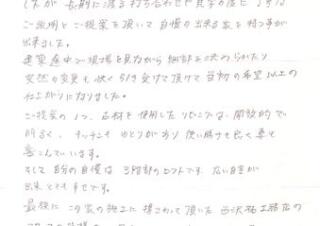 したが 長期に渡る打ち合わせや見学の度に
ご説明とご提案を頂いて自慢の出来る家を持つ事が
出来ました。
建築途中で現場を見ながら細部を決められたり
突然の変更も快く引き受けて頂けて当初の希望以上の
仕上がりになりました。
ご提案の1つ、石材を使用したリビングは、開放的で
明るく、キッチンもゆとりがあり使い勝手も良く妻も
喜こんでいます。
そして自分の自慢は3階部のロフトです。広い自室が
出来とても幸せです。
最後にこの家の施工に携さわって頂いた西沢工務店の